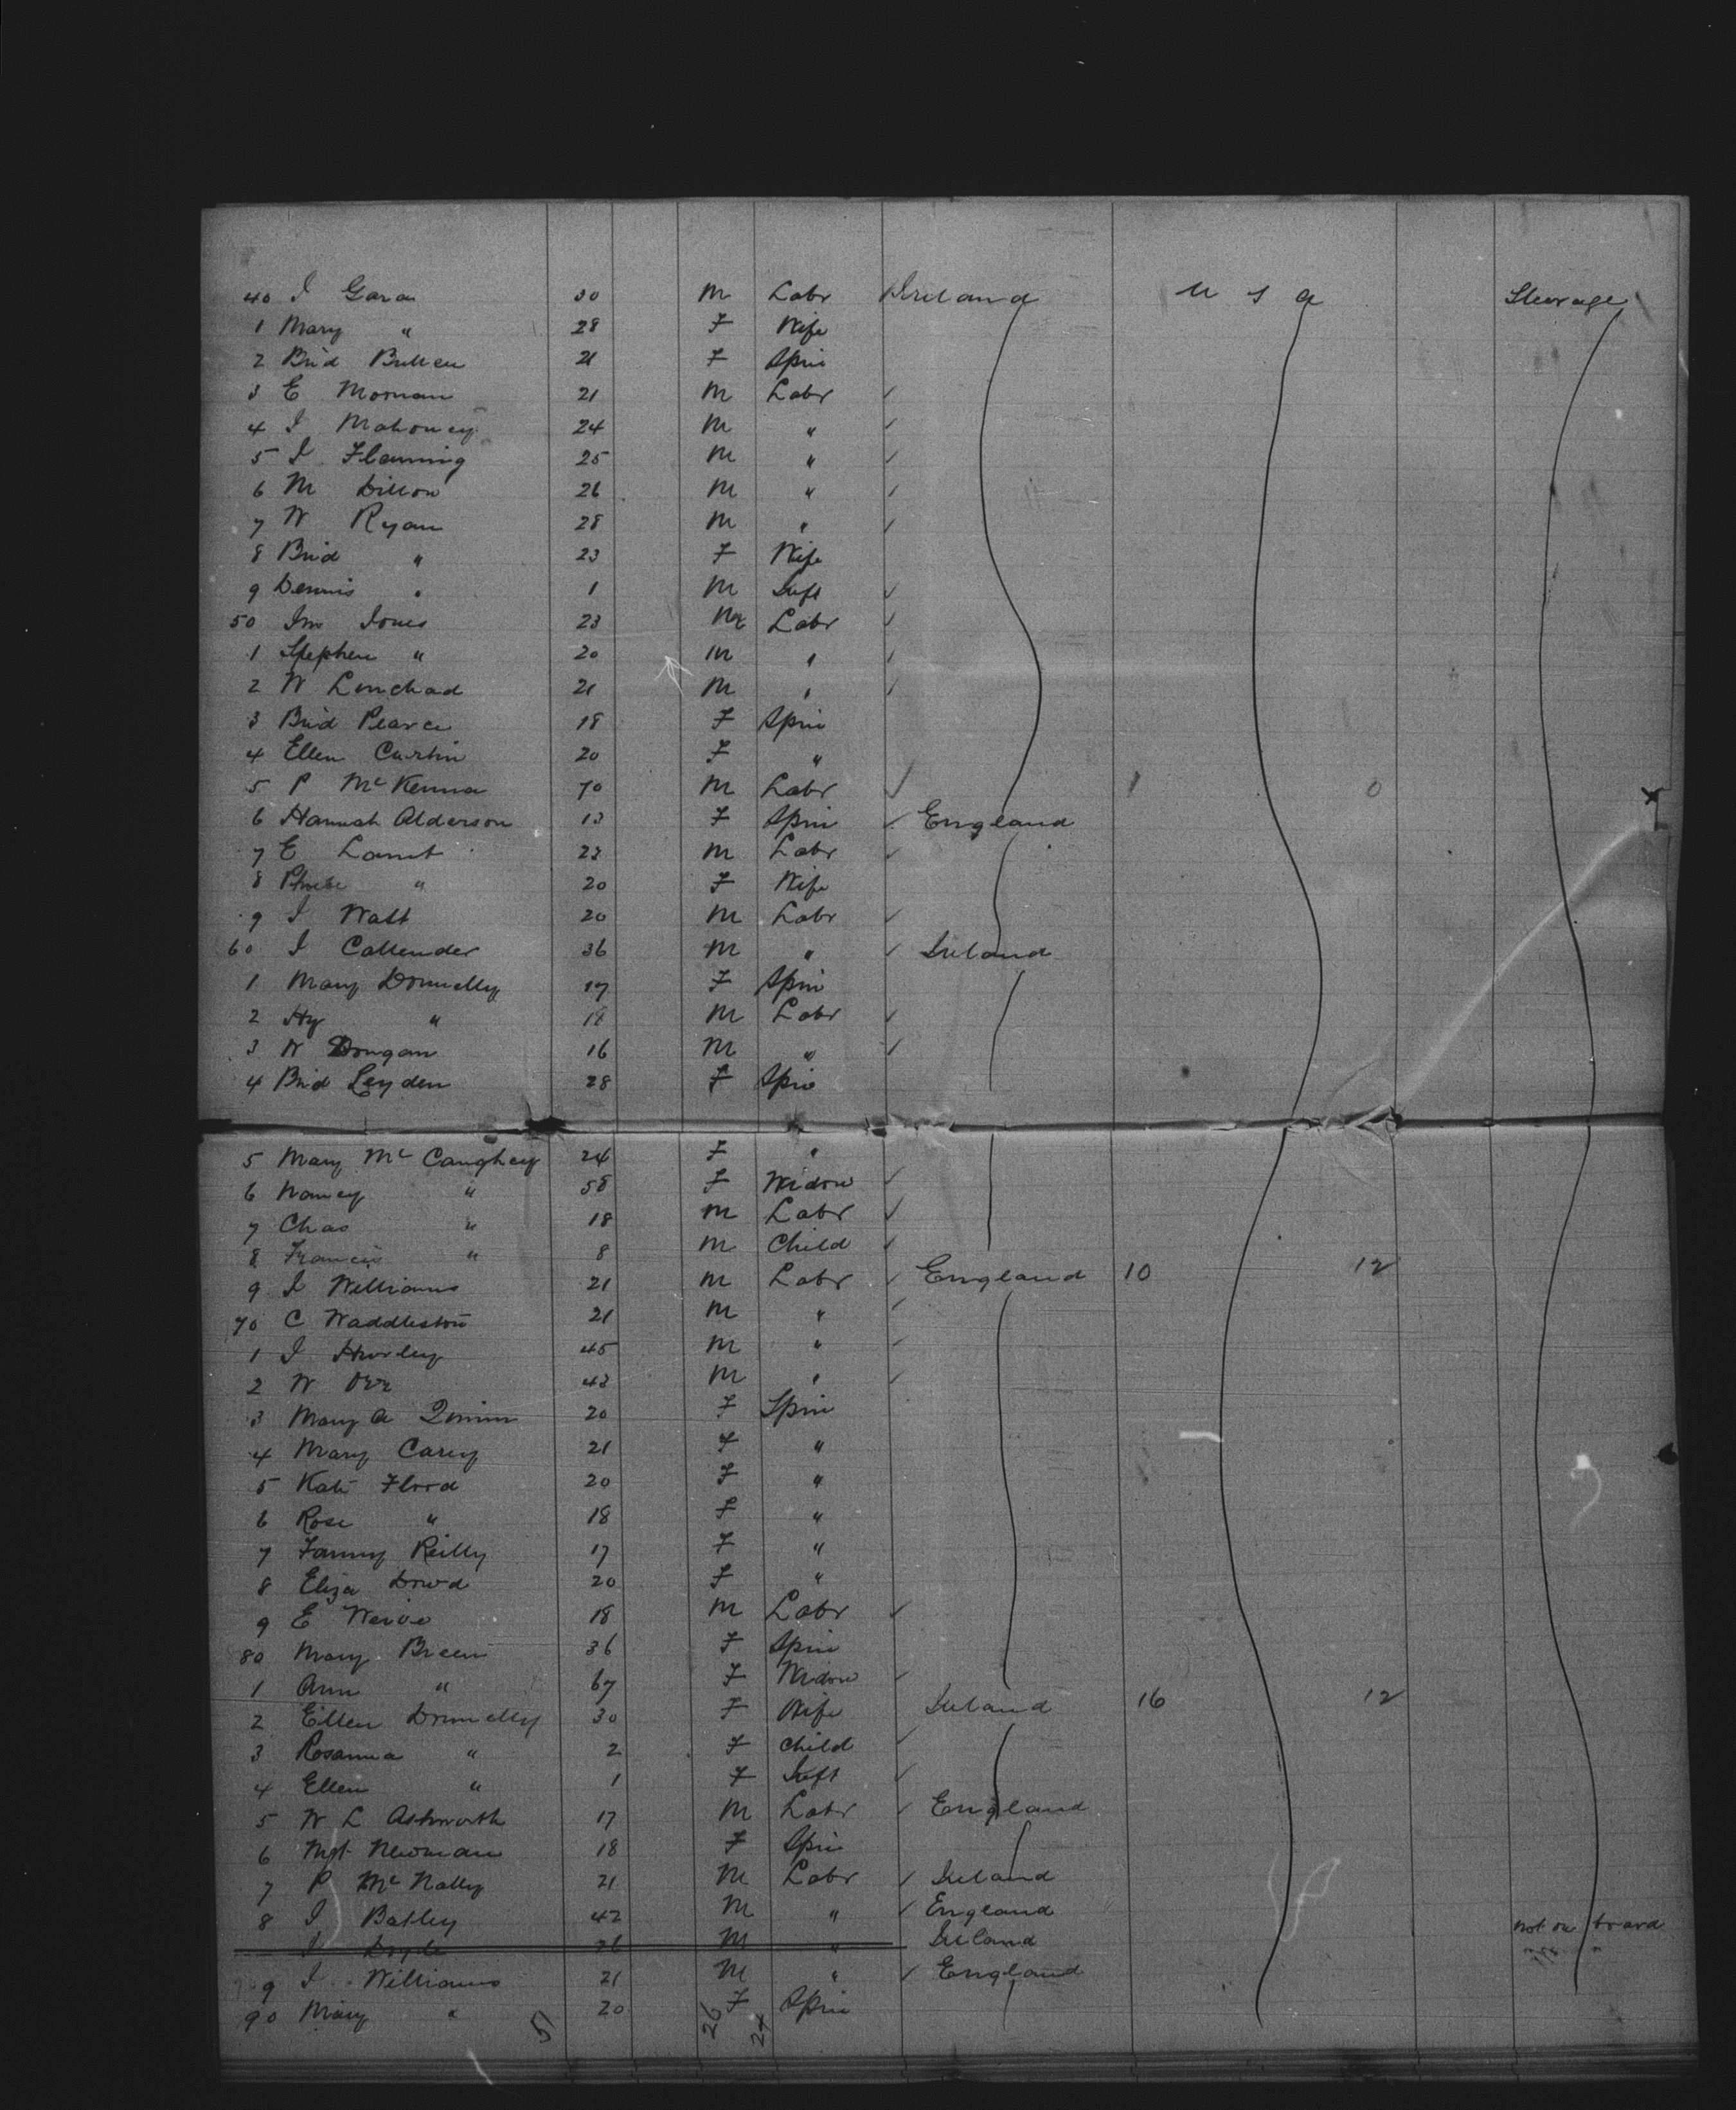 40 I Gara 30 M Labr Ireland U S A Steerage
1 Mary " 28 F Wife
2 Brid Bullen 21 F Spin
3 E Moonan 21 M Labr ✓
4 I Mahoney 24 M " ✓
5 I Flanning 25 M " ✓
6 M Dillon 26 M " ✓
7 W Ryan 28 M " ✓
8 Brid " 23 F Wife
9 Dennis " 1 M Inft ✓
50 Jno Jones 23 M Labr ✓
1 Stephen " 20 M " ✓
2 W Linehad 21 M " ✓
3 Brid Pearce 18 F Spin
4 Ellen Curtin 20 F "
5 P McKenna 70 M Labr ✓ 1 0
6 Hannah Alderson 13 F Spin ✓ England
7 E Lamb 22 M Labr ✓
8 Phoebe " 20 F Wife
9 I Watt 20 M Labr ✓
60 I Callender 36 M " ✓ Ireland
1 Mary Donnelly 17 F Spin
2 Hy " 18 M Labr ✓
3 W Dongan 16 M " ✓
4 Brid Leyden 28 F Spin
5 Mary McCaughey 24 F "
6 Nancy " 58 F Widow ✓
7 Chas " 18 M Labr ✓
8 Francis " 8 M Child ✓
9 I Williams 21 M Labr ✓ England 10 12
70 C Waddleston 21 M " ✓
1 I Hurley 45 M " ✓
2 W Orr 43 M " ✓
3 Mary A Quinn 20 F Spin
4 Mary Carey 21 F "
5 Kate Flood 20 F "
6 Rose " 18 F "
7 Fanny Reilly 17 F "
8 Eliza Dowd 20 F "
9 E 18 M Labr ✓
80 Mary Breen 36 F Spin
1 Ann " 67 F Widow ✓
2 Ellen Donnelly 30 F Wife Ireland 16 12
3 Rosanna " 2 F Child ✓
4 Ellen " 1 F Inft ✓
5 W L Ashworth 17 M Labr ✓ England
6 Mgt Newman 18 F Spin
7 P McNally 21 M Labr ✓ Ireland
8 I Batley 42 M " ✓ England
I Doyle 26 M " Ireland not on board
9 I Williams 21 M " ✓ England
90 Mary " 20 F Spin
51 26 24